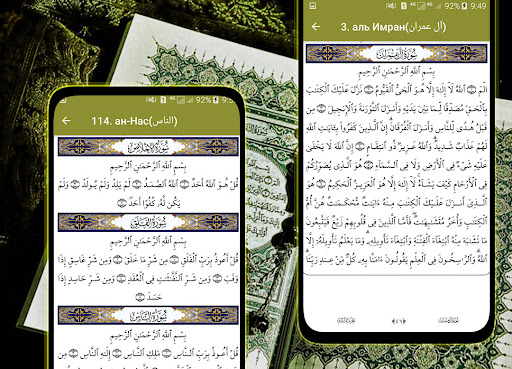 98% 9:5
114. ан-Нас(الناس)
سُورَةُ الإِخْلَاصِ
بِسْمِ ٱللَّهِ ٱلرَّحْمَٰنِ ٱلرَّحِيمِ
قُلْ هُوَ ٱللَّهُ أَحَدٌ ۝ ٱللَّهُ ٱلصَّمَدُ ۝ لَمْ يَلِدْ وَلَمْ يُولَدْ ۝ وَلَمْ
يَكُن لَّهُۥ كُفُوًا أَحَدٌ ۝
سُورَةُ الفَلَقِ
بِسْمِ ٱللَّهِ ٱلرَّحْمَٰنِ ٱلرَّحِيمِ
قُلْ أَعُوذُ بِرَبِّ ٱلْفَلَقِ ۝ مِن شَرِّ مَا خَلَقَ ۝ وَمِن شَرِّ غَاسِقٍ إِذَا
وَقَبَ ۝ وَمِن شَرِّ ٱلنَّفَّٰثَٰتِ فِى ٱلْعُقَدِ ۝ وَمِن شَرِّ حَاسِدٍ إِذَا
حَسَدَ ۝
سُورَةُ النَّاسِ
بِسْمِ ٱللَّهِ ٱلرَّحْمَٰنِ ٱلرَّحِيمِ
قُلْ أَعُوذُ بِرَبِّ ٱلنَّاسِ ۝ مَلِكِ ٱلنَّاسِ ۝ إِلَٰهِ ٱلنَّاسِ ۝ مِن
92% 9:49
3. аль Имран(آل عمران)
سُورَةُ آلِ عِمْرَانَ
بِسْمِ ٱللَّهِ ٱلرَّحْمَٰنِ ٱلرَّحِيمِ
الٓمٓ ۝ ٱللَّهُ لَآ إِلَٰهَ إِلَّا هُوَ ٱلْحَىُّ ٱلْقَيُّومُ ۝ نَزَّلَ عَلَيْكَ ٱلْكِتَٰبَ
بِٱلْحَقِّ مُصَدِّقًا لِّمَا بَيْنَ يَدَيْهِ وَأَنزَلَ ٱلتَّوْرَىٰةَ وَٱلْإِنجِيلَ ۝ مِن
قَبْلُ هُدًى لِّلنَّاسِ وَأَنزَلَ ٱلْفُرْقَانَ ۗ إِنَّ ٱلَّذِينَ كَفَرُوا۟ بِـَٔايَٰتِ ٱللَّهِ
لَهُمْ عَذَابٌ شَدِيدٌ ۗ وَٱللَّهُ عَزِيزٌ ذُو ٱنتِقَامٍ ۝ إِنَّ ٱللَّهَ لَا يَخْفَىٰ
عَلَيْهِ شَىْءٌ فِى ٱلْأَرْضِ وَلَا فِى ٱلسَّمَآءِ ۝ هُوَ ٱلَّذِى يُصَوِّرُكُمْ
فِى ٱلْأَرْحَامِ كَيْفَ يَشَآءُ ۚ لَآ إِلَٰهَ إِلَّا هُوَ ٱلْعَزِيزُ ٱلْحَكِيمُ ۝ هُوَ
ٱلَّذِىٓ أَنزَلَ عَلَيْكَ ٱلْكِتَٰبَ مِنْهُ ءَايَٰتٌ مُّحْكَمَٰتٌ هُنَّ أُمُّ
ٱلْكِتَٰبِ وَأُخَرُ مُتَشَٰبِهَٰتٌ ۖ فَأَمَّا ٱلَّذِينَ فِى قُلُوبِهِمْ زَيْغٌ فَيَتَّبِعُونَ
مَا تَشَٰبَهَ مِنْهُ ٱبْتِغَآءَ ٱلْفِتْنَةِ وَٱبْتِغَآءَ تَأْوِيلِهِۦ ۗ وَمَا يَعْلَمُ تَأْوِيلَهُۥٓ إِلَّا
ٱللَّهُ ۗ وَٱلرَّٰسِخُونَ فِى ٱلْعِلْمِ يَقُولُونَ ءَامَنَّا بِهِۦ كُلٌّ مِّنْ عِندِ رَبِّنَا